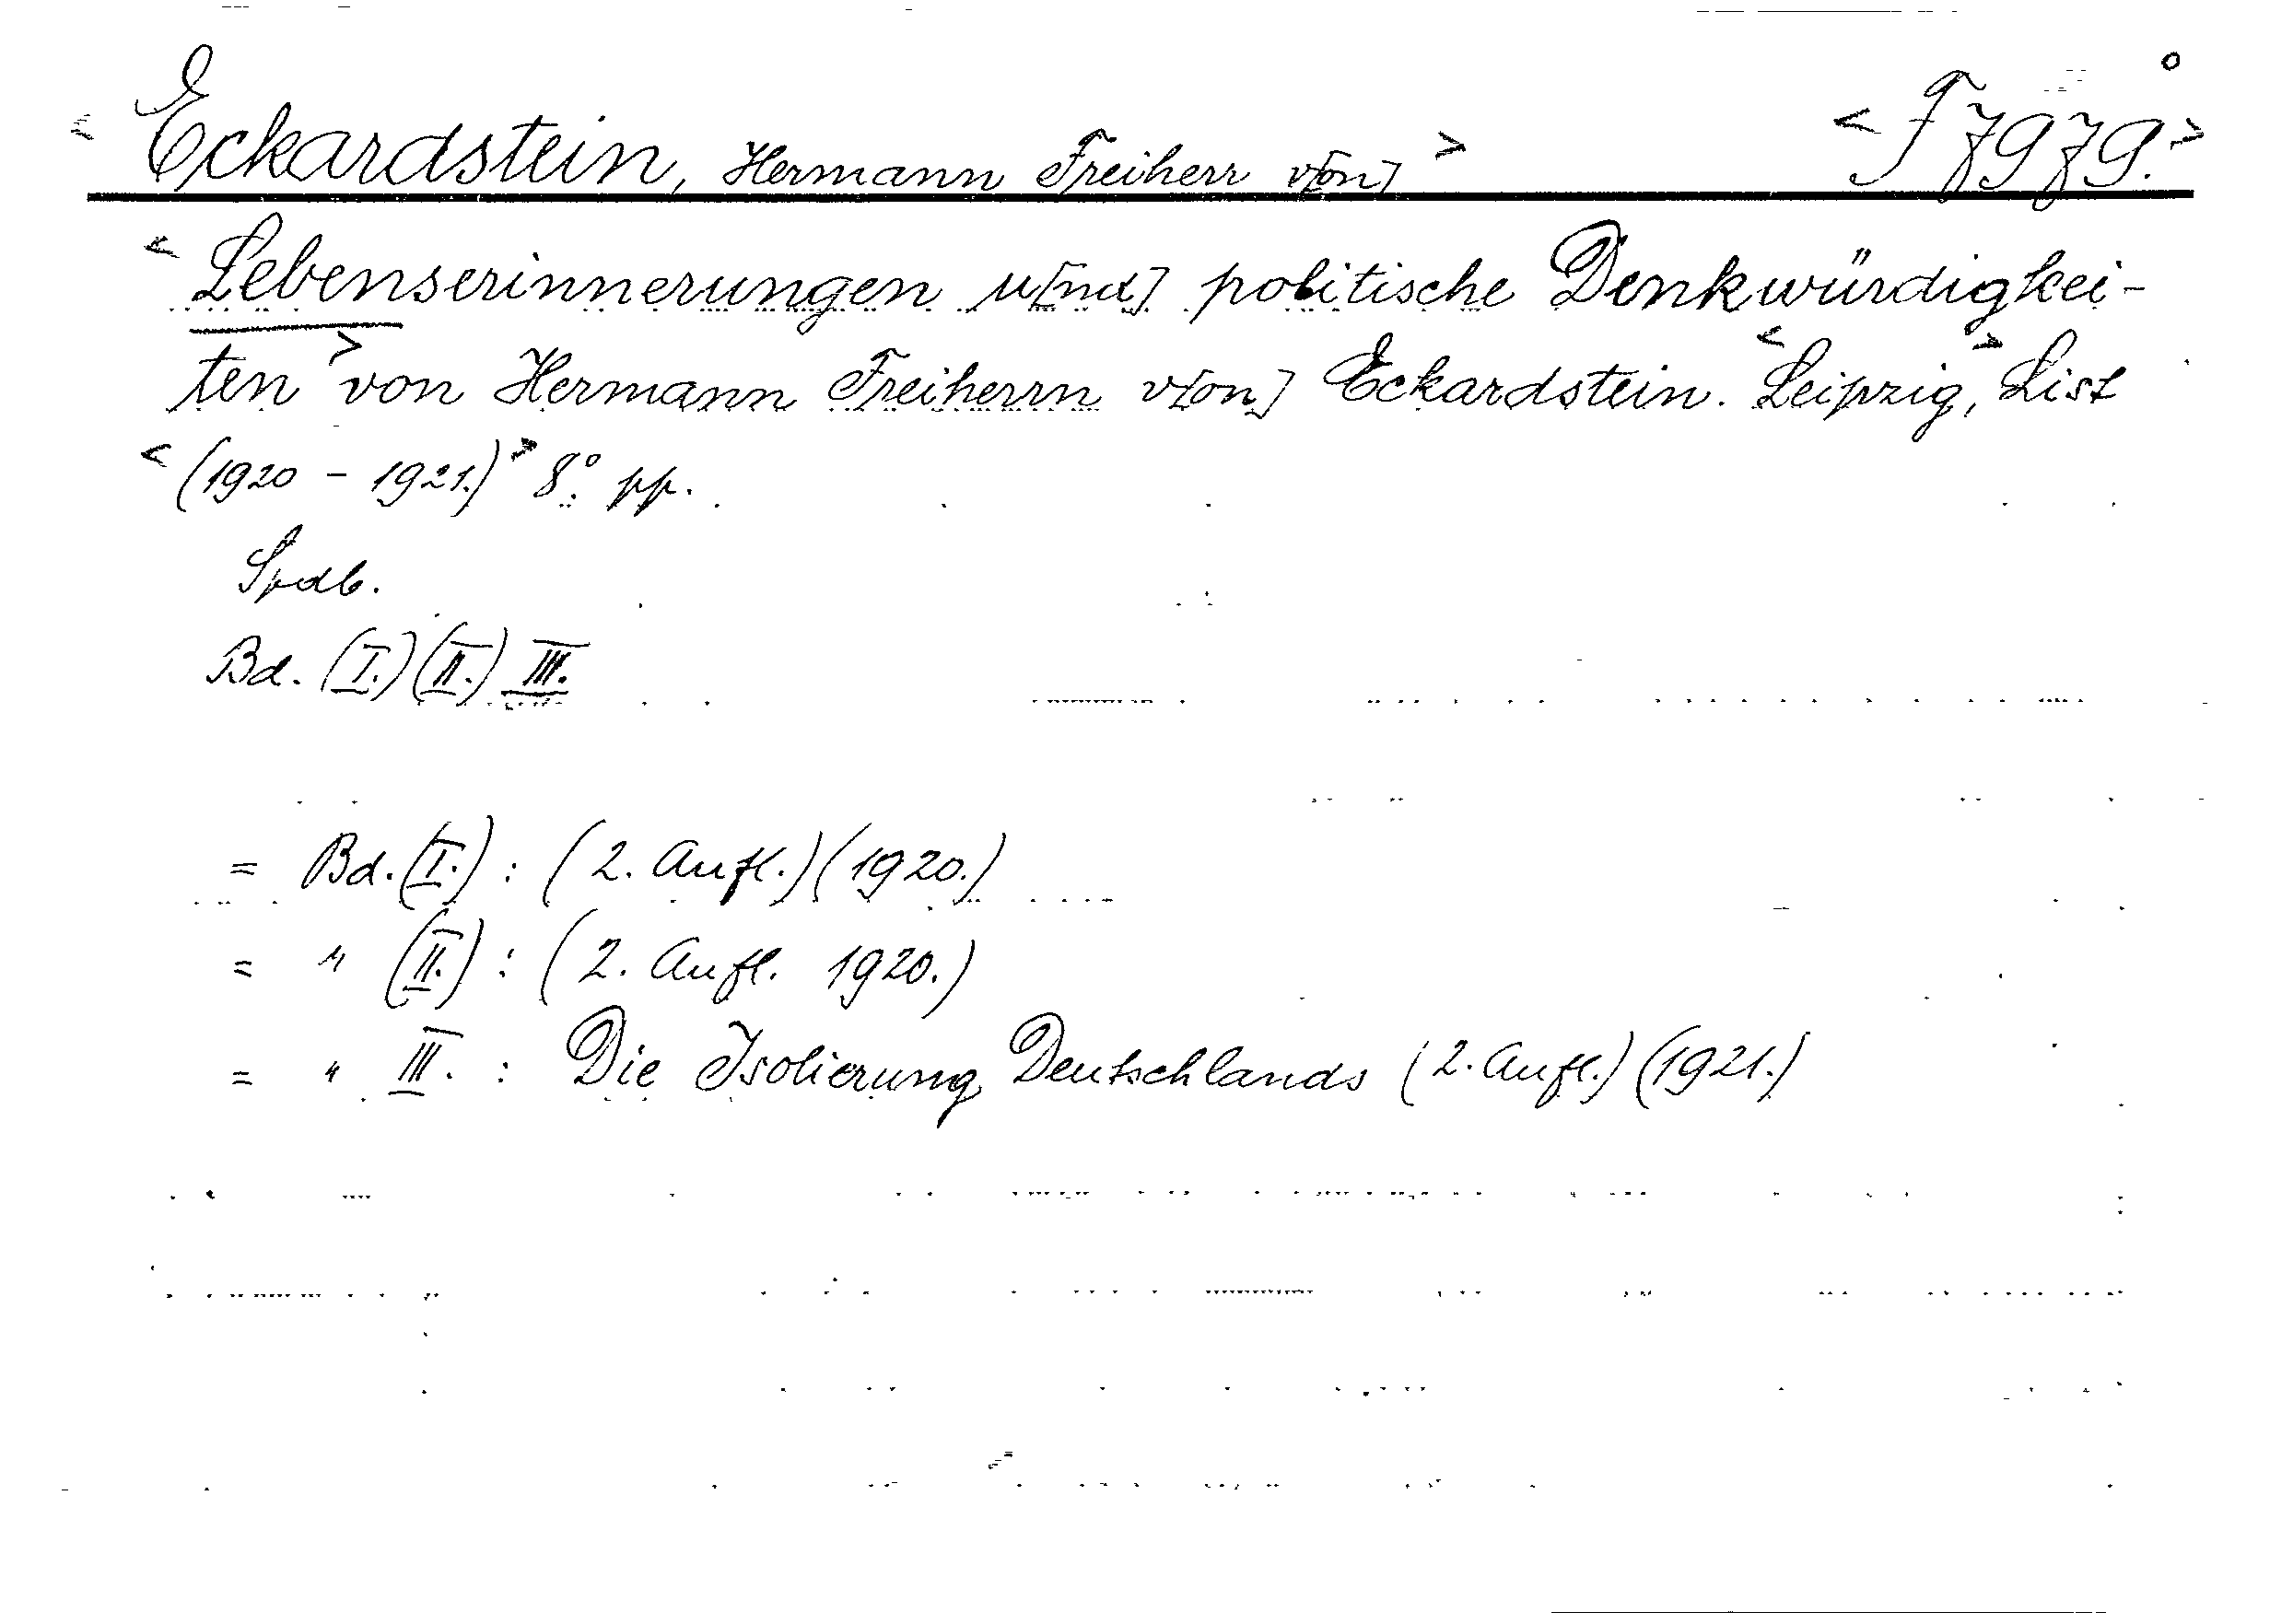 < Eckardstein, Hermann Freiherr v[on] > < F 7979. >
< Lebenserinnerungen u[nd] politische Denkwürdigkei-
ten > von Hermann Freiherrn v[on] Eckardstein. < Leipzig, > List
< (1920 - 1921.) > 8°. pp.
Spdb.
Bd. (I.) (II.) III.
= Bd. (I.) : (2. Aufl.) (1920.)
= " (II.) : (2. Aufl. 1920.)
= " III. : Die Isolierung Deutschlands (2. Aufl.) (1921.)